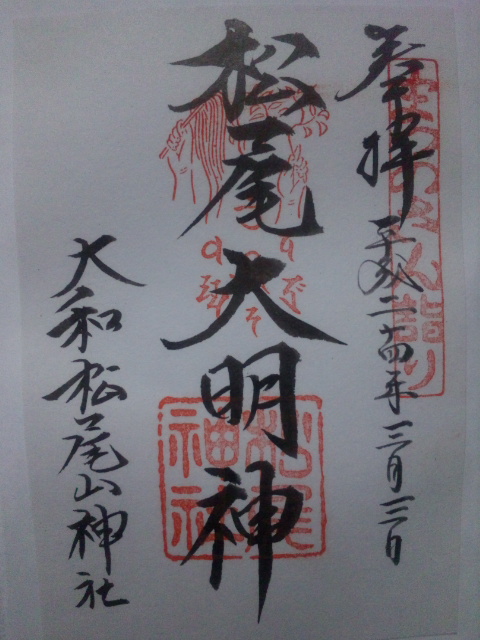 奉拝
平成二十四年三月三日
松尾大明神
大和松尾山神社
松尾神社